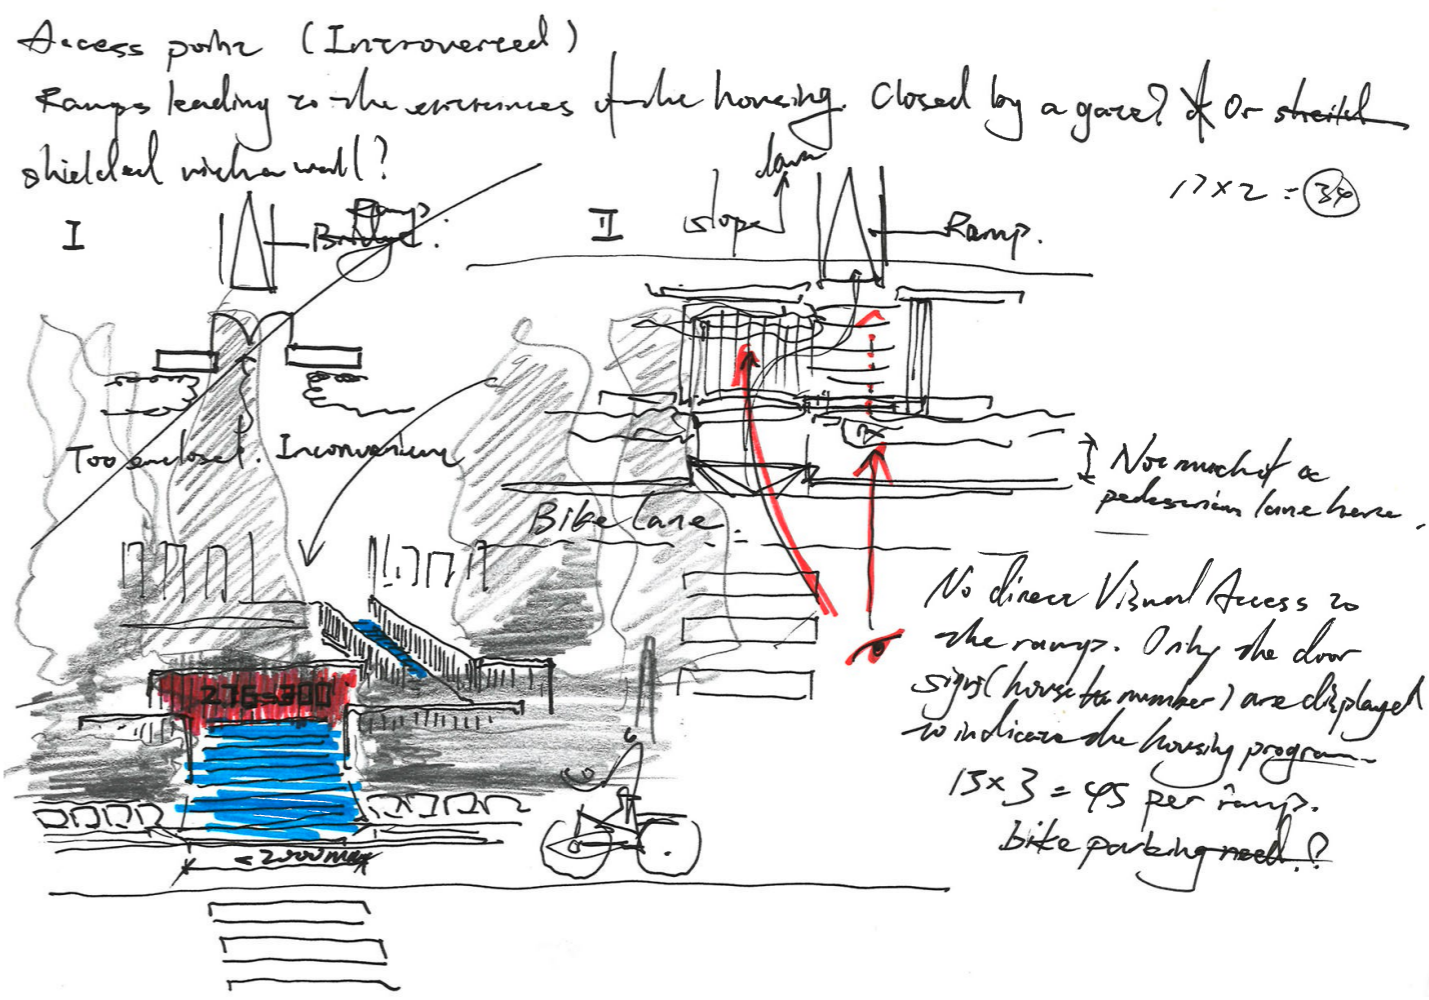 Access point (Introverted)
Ramps leading to the entrances of the housing. Closed by a gate? Or
shielded with a wall?
17 x 2 = 34
I
Ramp.
Bridge
II
slope
lawn
Ramp.
Too enclose. Inconvenience
Not much of a
pedestrian lane here.
Bike lane.
No direct Visual Access to
the ramp. Only the door
signs (house number) are displayed
to indicate the housing program.
276-300
15 x 3 = 45 per ramp.
bike parking need?
< 2000 max